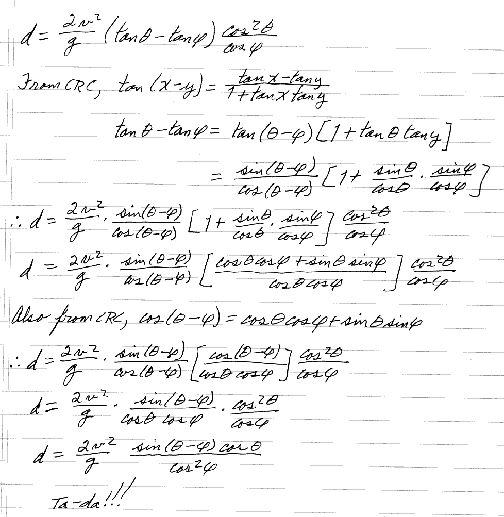 d = 2v²/g (tanθ - tanφ) cos²θ/cosφ
From CRC, tan(x-y) = (tan x - tan y)/(1 + tan x tan y)
tanθ - tanφ = tan(θ-φ) [1 + tanθ tan y]
= sin(θ-φ)/cos(θ-φ) [1 + sinθ/cosθ · sinφ/cosφ]
∴ d = 2v²/g · sin(θ-φ)/cos(θ-φ) [1 + sinθ/cosθ · sinφ/cosφ] cos²θ/cosφ
d = 2v²/g · sin(θ-φ)/cos(θ-φ) [(cosθ cosφ + sinθ sinφ)/(cosθ cosφ)] cos²θ/cosφ
Also from CRC, cos(θ-φ) = cosθ cosφ + sinθ sinφ
∴ d = 2v²/g · sin(θ-φ)/cos(θ-φ) [cos(θ-φ)/(cosθ cosφ)] cos²θ/cosφ
d = 2v²/g · sin(θ-φ)/(cosθ cosφ) · cos²θ/cosφ
d = 2v²/g sin(θ-φ) cosθ/cos²φ
Ta-da!!!